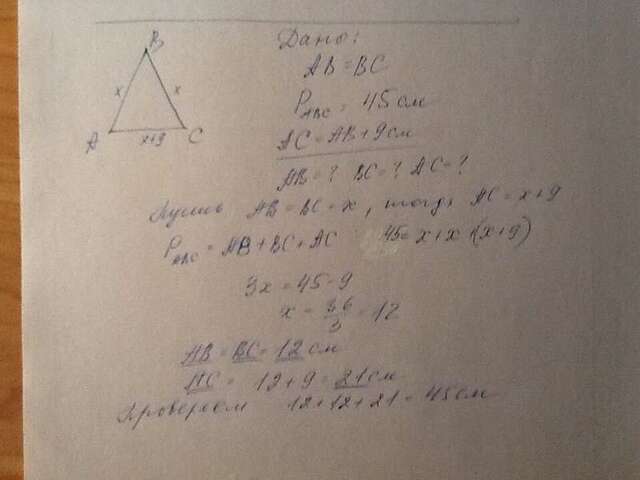 B
x x
A x+9 C
Дано:
AB = BC
P ABC = 45 см
AC = AB + 9 см
AB = ? BC = ? AC = ?
Пусть AB = BC = x, тогда AC = x+9
P ABC = AB + BC + AC 45 = x + x + (x+9)
3x = 45 - 9
x = 36/3 = 12
AB = BC = 12 см
AC = 12 + 9 = 21 см
Проверяем 12 + 12 + 21 = 45 см